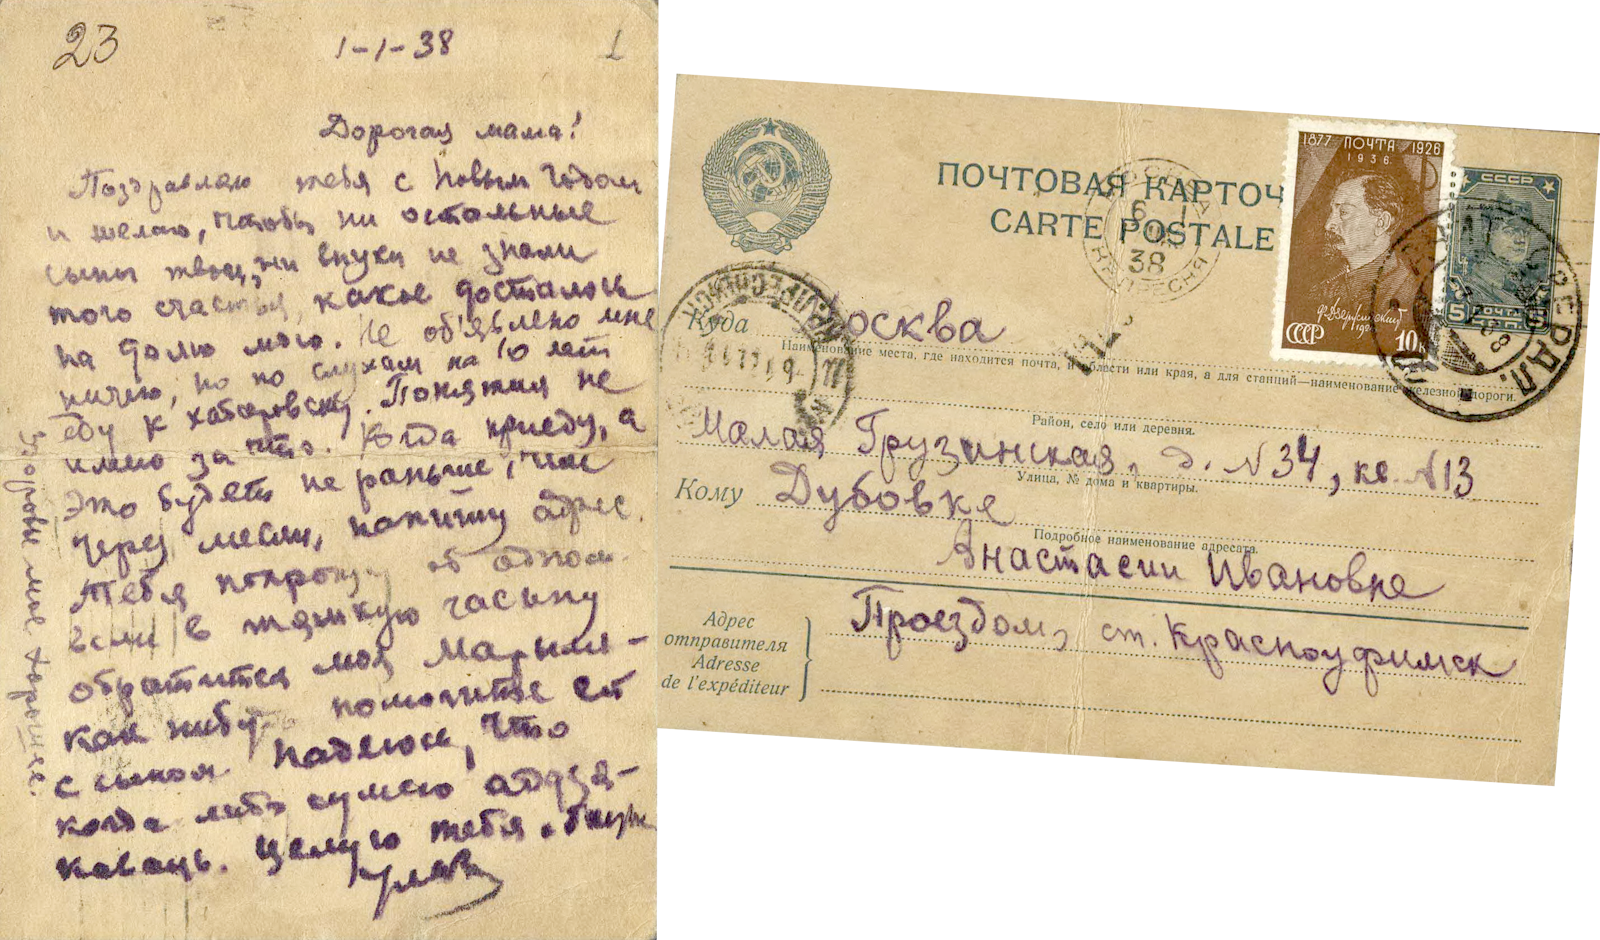 23
1-1-38
1
Дорогая мама!
Поздравляю тебя с Новым Годом
и желаю, чтобы ни остальные
сыны твои, ни внуки не знали
того счастья, какое досталось
на долю мою. Не об'явлено мне
ничего, но по слухам на 10 лет
еду к Хабаровску. Понятия не
имею за что. Когда приеду, а
это будет не раньше, чем
через месяц, напишу адрес.
Тебя попрошу об одном.
Если в тяжкую часину
обратится моя Марыля -
как нибудь помогите ей
с сыном Надеюсь, что
когда либо сумею аддзя-
каваць. Целую тебя.
Здоровье мое хорошее.
ПОЧТОВАЯ КАРТОЧ
CARTE POSTALE
1877 ПОЧТА 1926
1936
Ф. Дзержинский
СССР 10к
СССР
5 ПОЧТА
МОСКВА
6 1
38
КР. ПРЕСНЯ
СВЕРДЛ.
Куда Москва
Наименование места, где находится почта, и области или края, а для станций—наименование железной дороги.
Район, село или деревня.
Малая Грузинская, д. №34, кв. №13
Улица, № дома и квартиры.
Кому Дубовке
Подробное наименование адресата.
Анастасии Ивановне
Адрес
отправителя
Adresse
de l'expéditeur
Проездом, ст. Красноуфимск